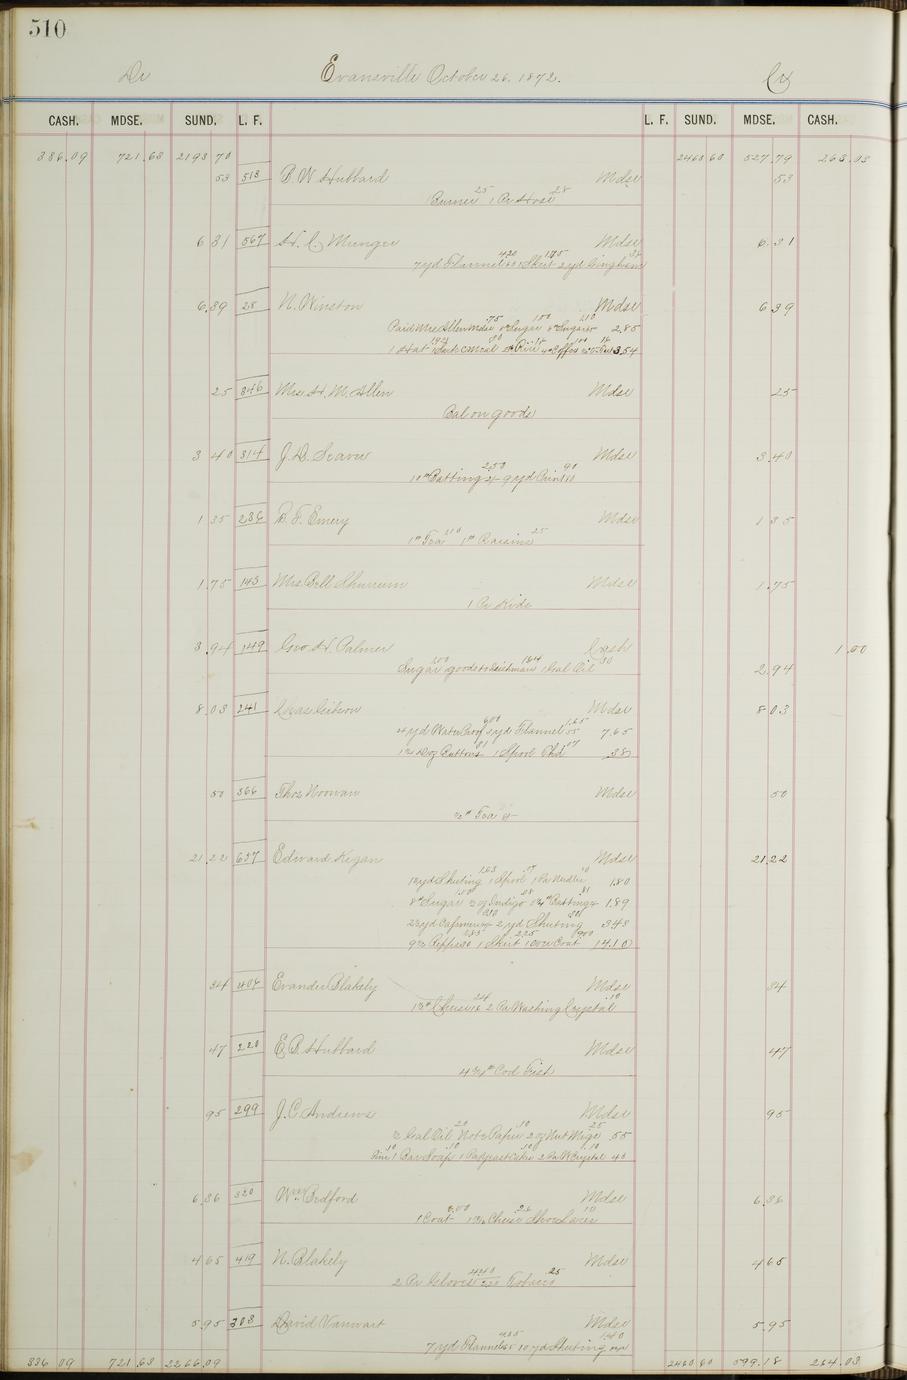 510
Dr Evansville October 26. 1872. Cr
CASH. MDSE. SUND. L. F. L. F. SUND. MDSE. CASH.
336.09 721.63 2193 70 2460 60 527.79 263.03
53 518 B. W. Hubbard Mdse 53
Burner 25 1 Pr Hose 28
6 31 567 H. C. Munger Mdse 6.31
7 yd Flannel 60 420 1 Skirt 175 2 yd Gingham 36
6.39 28 N. Winston Mdse 6 39
Paid Mrs Allen Mdse .75 Sugar 100 Sugar 110 2.85
1 Hat Sack C Meal Rice Coffee 3.54
25 346 Mrs. H. M. Allen Mdse 25
Bal on goods
3 40 314 J. D. Seaver Mdse 3.40
10 lb Batting 25 250 9 yd Print 10 90
1 35 236 D. F. Emery Mdse 1 35
1 lb Tea 110 1 lb Raisins 25
1.75 143 Mrs. Bell Mdse 1.75
1 Pr Kids
3.94 149 Geo. H. Palmer Cash 1.00
Sugar 100 goods to 164 1 Coal Oil 30 2.94
8.03 241 Chas Gibson Mdse 8 03
4 yd Water Proof 600 3 yd Flannel 55 1.65 7.65
Doz Buttons 31 1 Spool Thd 07 38
50 366 Thos Noonan Mdse 50
½ lb Tea 8/-
21.22 637 Edward Kegan Mdse 21.22
yd Sheting 163 1 Spool 07 1 Pa Needles 10 1.80
8 lb Sugar 100 2 oz Indigo .08 Batting 81 1.89
yd Casimere 2 yd Sheting 3.48
1 Shirt 225 1 Over Coat 900 14.10
34 404 Evander Blakely Mdse 34
1½ lb Cheese 16 24 2 Pa Washing Crystal 10
47 220 E. B. Hubbard Mdse 47
lb Cod Fish
95 299 J. C. Andrews Mdse 95
½ Coal Oil 20 Note Paper 10 2 oz Nut Megs 25 55
10 1 Bar Soap 10 1 Pa Yeast Cakes 10 2 Pa W Crystal 10 40
6.36 320 Wm. Bedford Mdse 6.36
1 Coat 6.00 Cheese 26 Shoe Laces 10
4 65 419 N. Blakely Mdse 4 65
2 Pr Gloves 440 Tobacco 25
5.95 303 David Vanwart Mdse 5.95
7 yd Flannel 65 455 10 yd Sheting 140
336 09 721.63 2266.09 2460 60 599.18 264.03